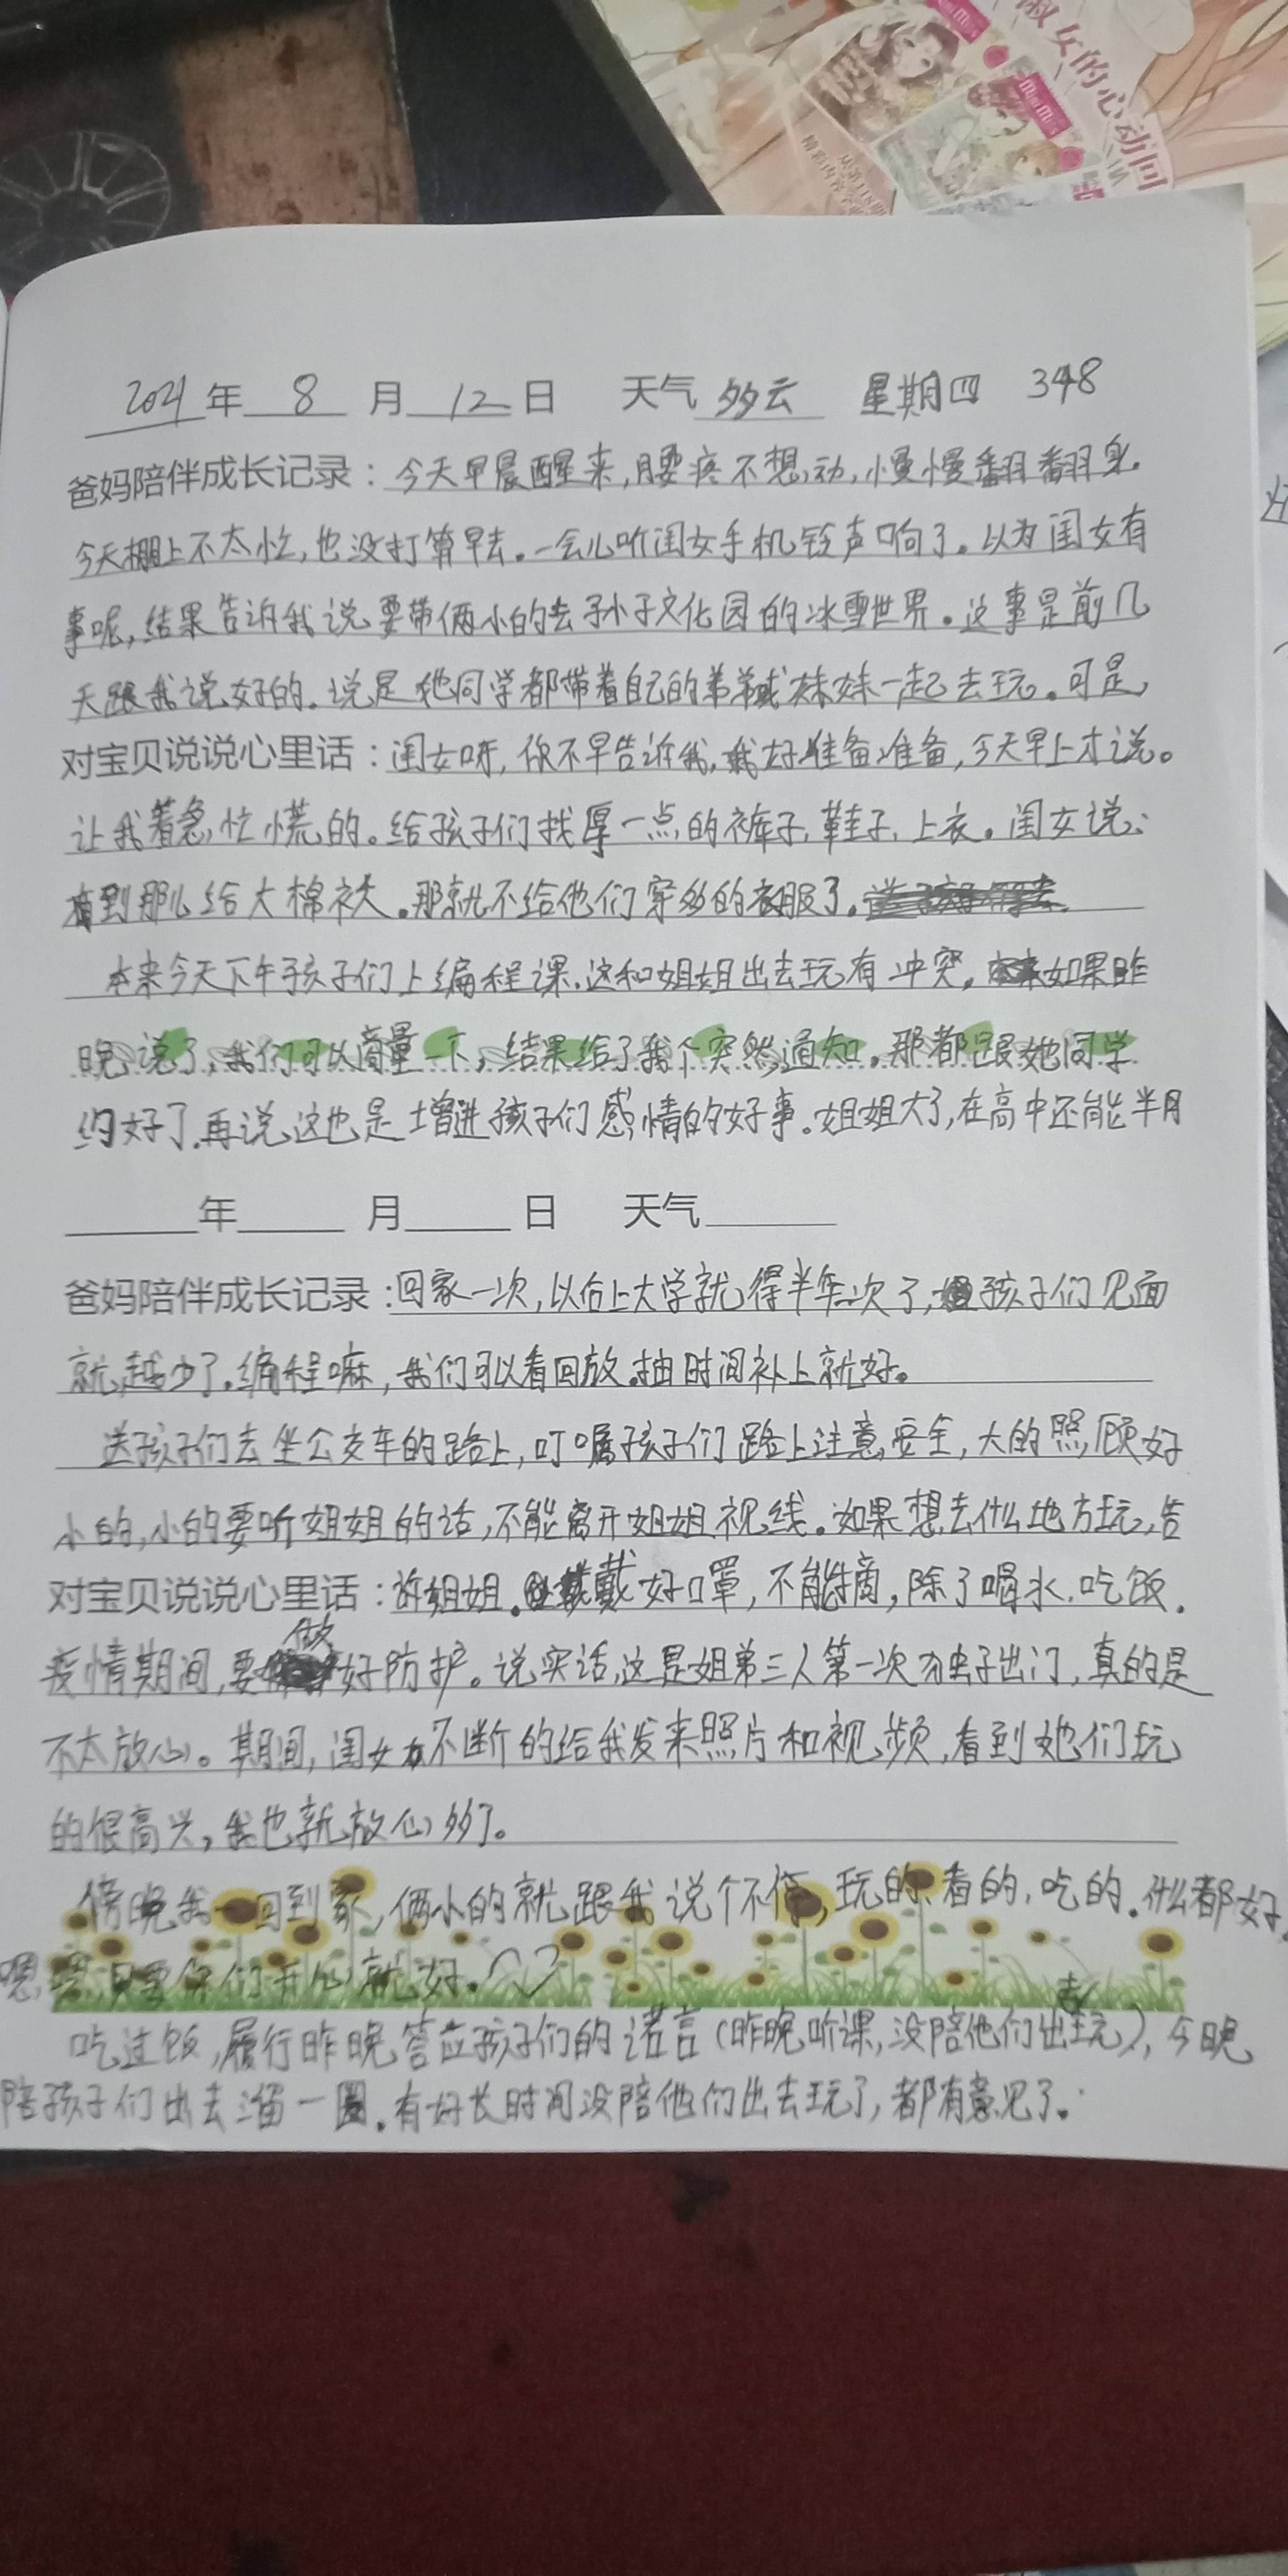 淑女的心动问
MiniMiss
MiniMiss
2021年 8 月 12 日 天气 多云 星期四 348
爸妈陪伴成长记录：今天早晨醒来，腰疼不想动，慢慢翻翻身。
今天棚上不太忙，也没打算早去。一会儿听闺女手机铃声响了。以为闺女有
事呢，结果告诉我说要带俩小的去孙子文化园的冰雪世界。这事是前几
天跟我说好的。说是他同学都带着自己的弟弟或妹妹一起去玩。可是，
对宝贝说说心里话：闺女呀，你不早告诉我，我好准备准备，今天早上才说。
让我着急忙慌的。给孩子们找厚一点的裤子，鞋子，上衣。闺女说：
到那儿给大棉袄。那就不给他们穿多的衣服了。
本来今天下午孩子们上编程课。这和姐姐出去玩有冲突。如果昨
晚说了，我们可以商量一下，结果给了我个突然通知。那都跟她同学
约好了。再说这也是增进孩子们感情的好事。姐姐大了，在高中还能半月
年 月 日 天气
爸妈陪伴成长记录：回家一次，以后上大学就得半年次了，孩子们见面
就越少了。编程嘛，我们可以看回放。抽时间补上就好。
送孩子们去坐公交车的路上，叮嘱孩子们路上注意安全，大的照顾好
小的，小的要听姐姐的话，不能离开姐姐视线。如果想去什么地方玩，告
对宝贝说说心里话：诉姐姐。戴好口罩，不能摘，除了喝水，吃饭。
疫情期间，要做好防护。说实话，这是姐弟三人第一次独子出门，真的是
不太放心。期间，闺女不断的给我发来照片和视频，看到她们玩
的很高兴，我也就放心多了。
傍晚我一回到家，俩小的就跟我说个不停，玩的，看的，吃的。什么都好。
嗯，嗯，只要你们开心就好。
吃过饭，履行昨晚答应孩子们的诺言（昨晚听课，没陪他们出去玩），今晚
陪孩子们出去溜一圈。有好长时间没陪他们出去玩了，都有意见了。